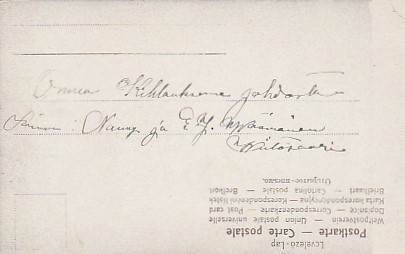 Onnea Kihlauksenne johdosta
Nanny ja E. J.
Levelező-Lap
Postkarte — Carte postale
Weltpostverein — Union postale universelle
Dopisnice — Correspondenzkarte — Post card
Karta korespondencyjna — Korespondenční lístek
Briefkaart — Cartolina postale — Brefkort
Открытое письмо.